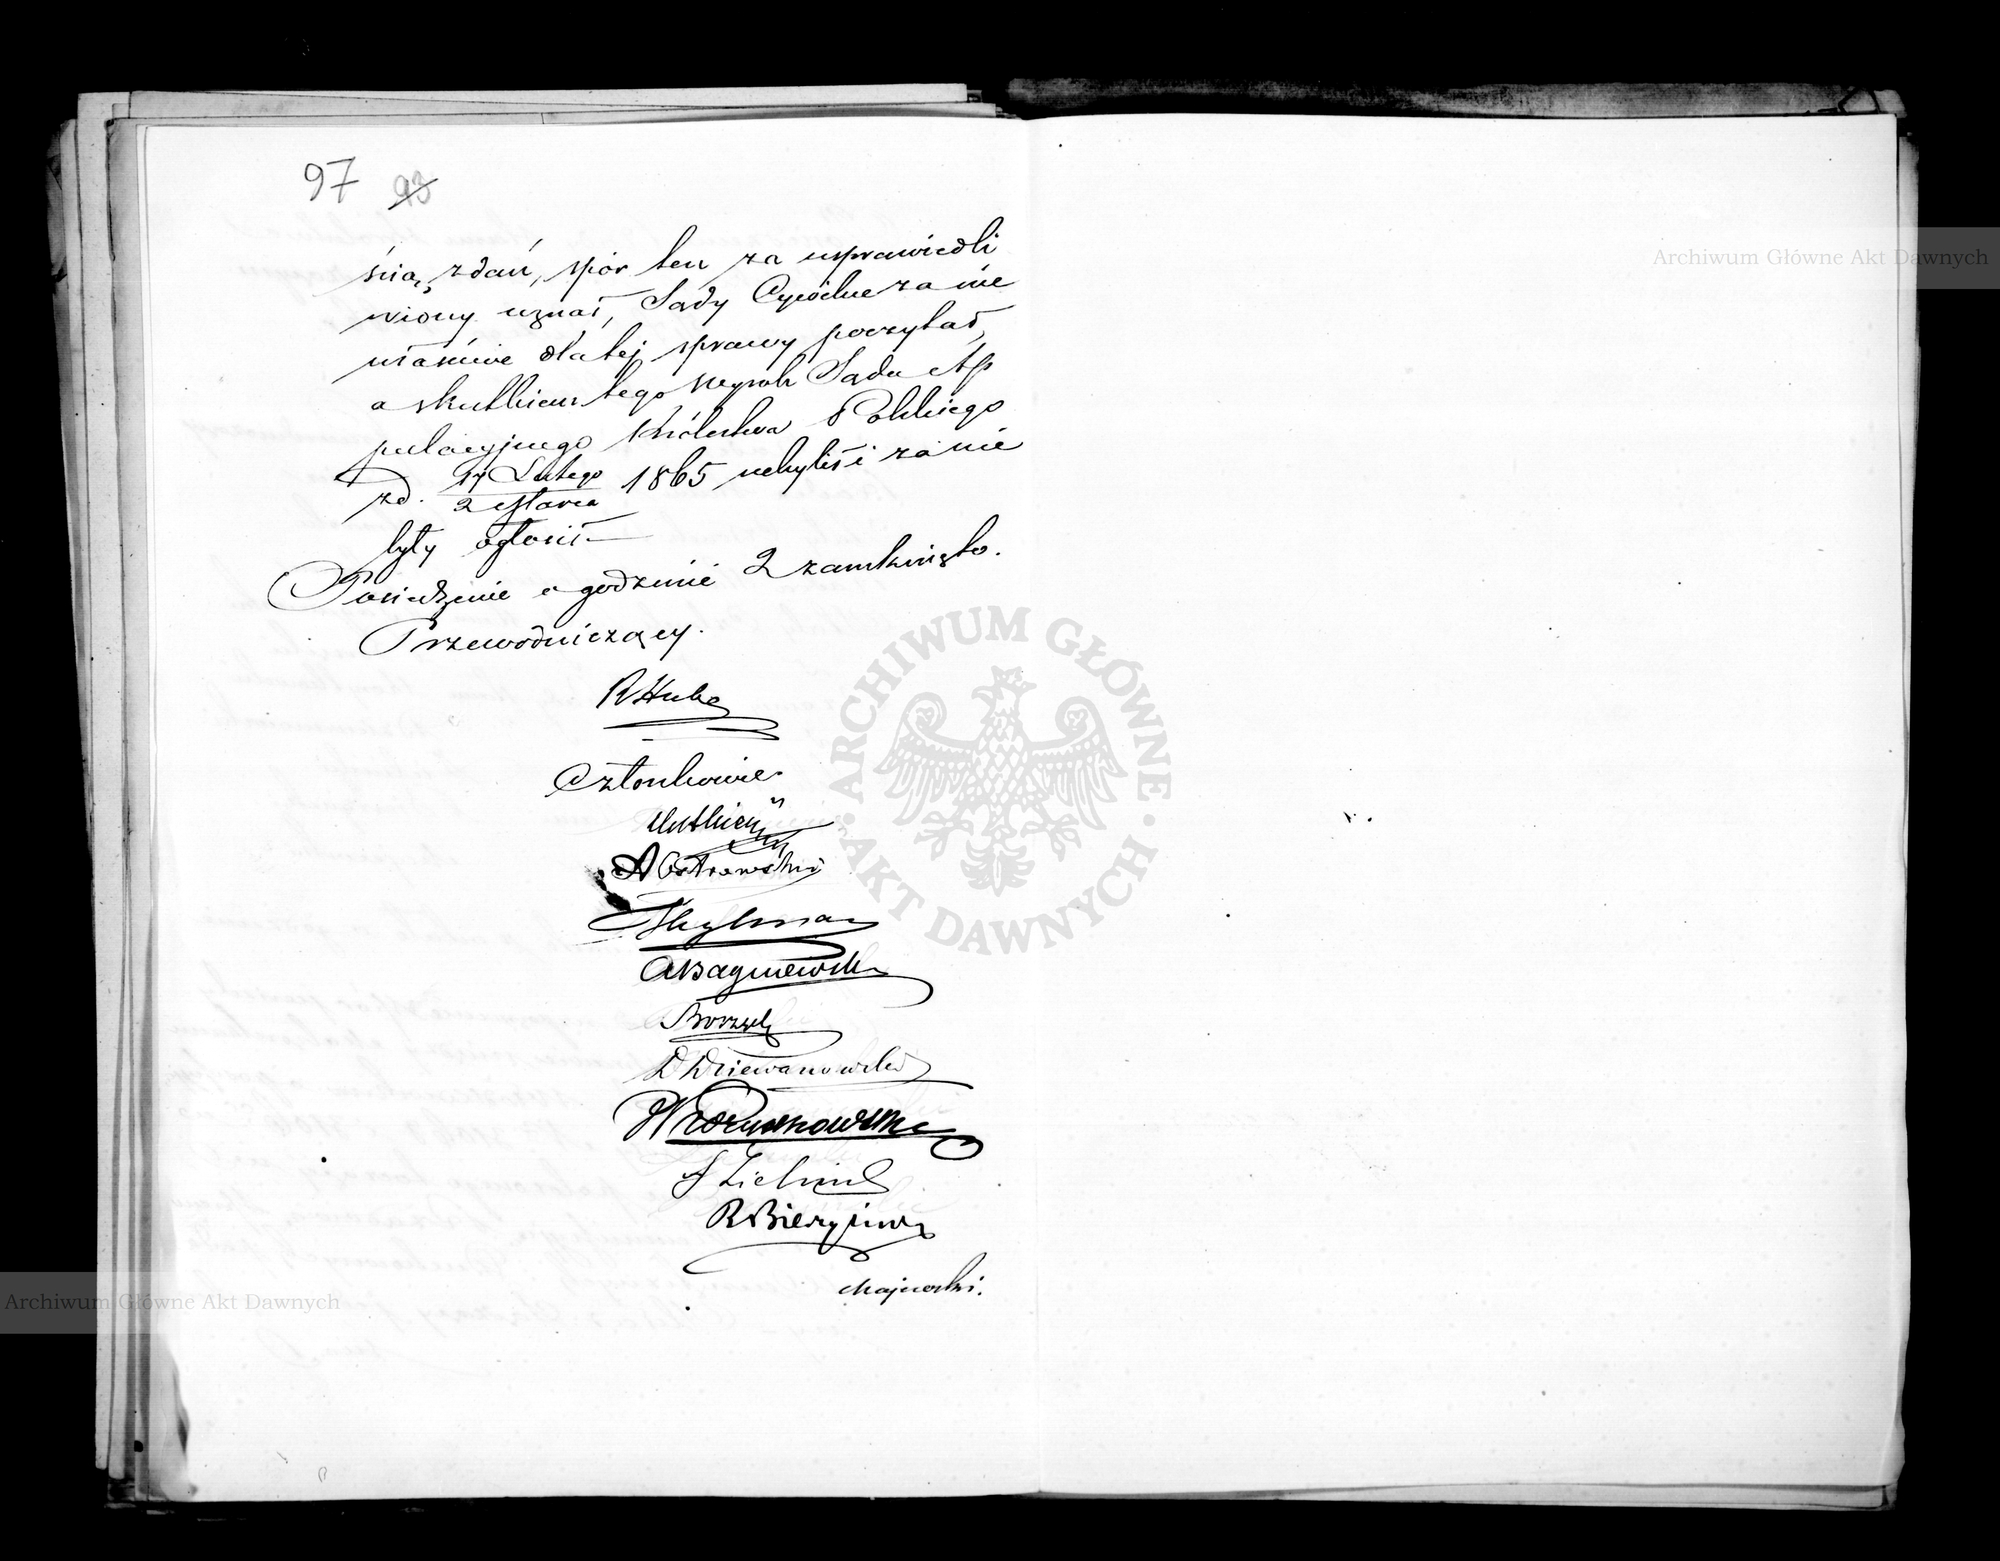 97 93
ścią zdań, spór ten za usprawiedli
wiony uznał, Sądy Cywilne za nie
właściwe dla tej sprawy poczytał,
a skutkiem tego wyrok Sądu Ap
pelacyjnego Królestwa Polskiego
zd. 17 Lutego 1865 uchylił i za nie
2 Marca
były ogłosił
Posiedzenie o godzinie 2 zamknięto.
Przewodniczący.
R Hube
Członkowie
A Ostrowski
A Bagniewski
D Dziewanowski
J Zieliński
R Bierzyński
Majewski.
Archiwum Główne Akt Dawnych
ARCHIWUM GŁÓWNE AKT DAWNYCH
Archiwum Główne Akt Dawnych